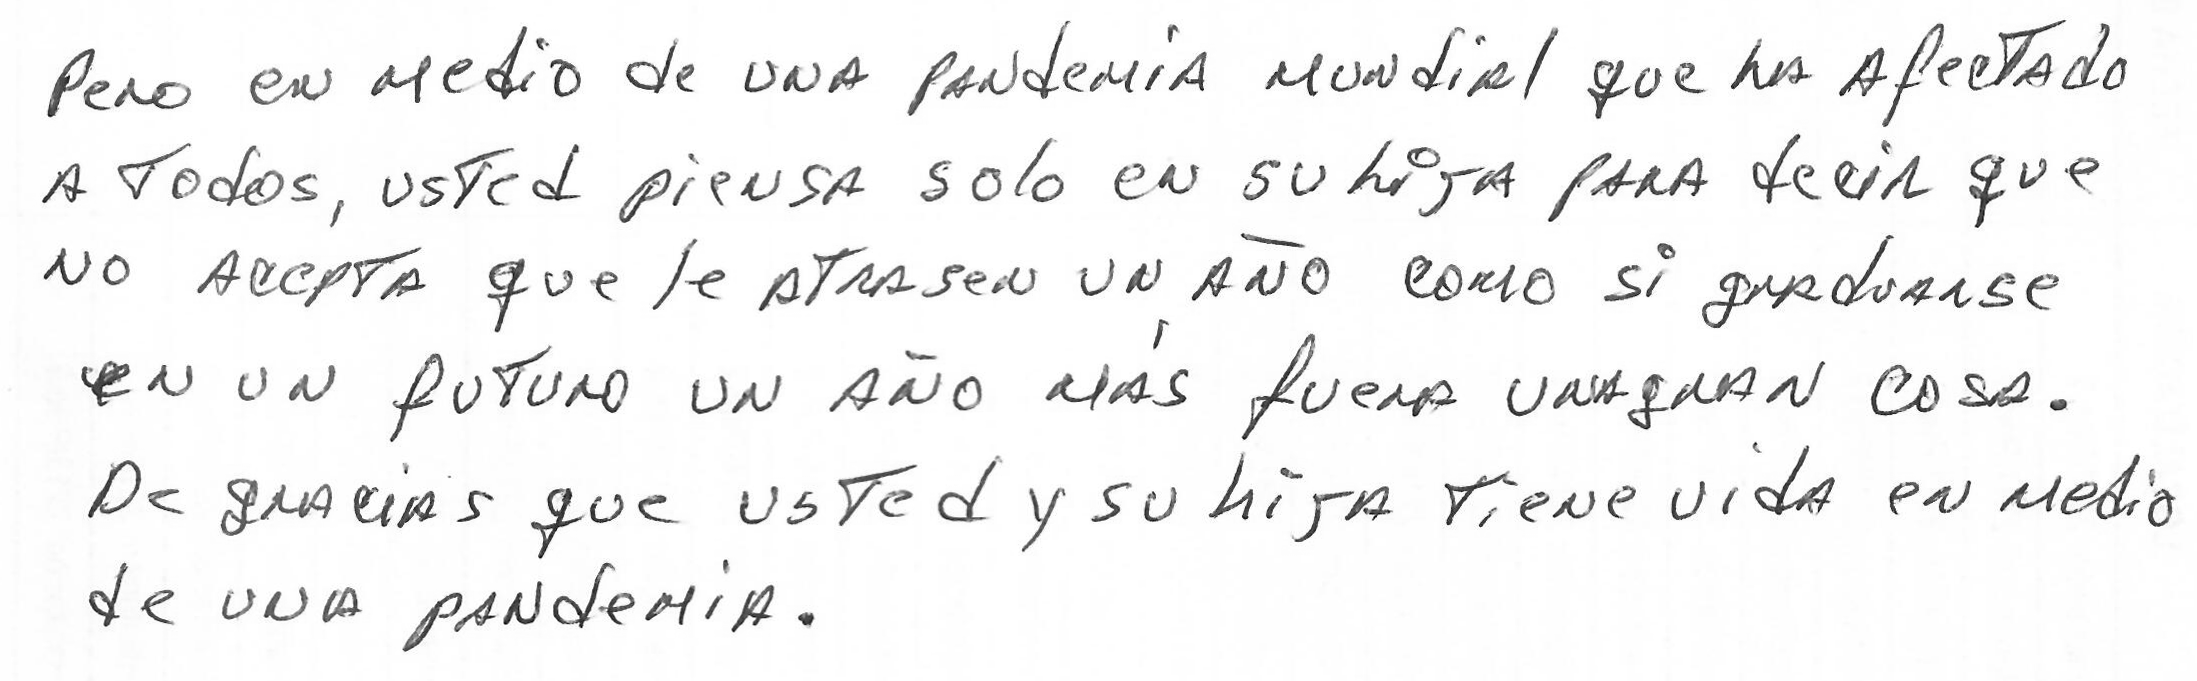 Pero en medio de una pandemia mundial que ha afectado
a todos, usted piensa solo en su hija para decir que
no acepta que le atrasen un año como si graduarse
en un futuro un año más fuera una gran cosa.
De gracias que usted y su hija tiene vida en medio
de una pandemia.